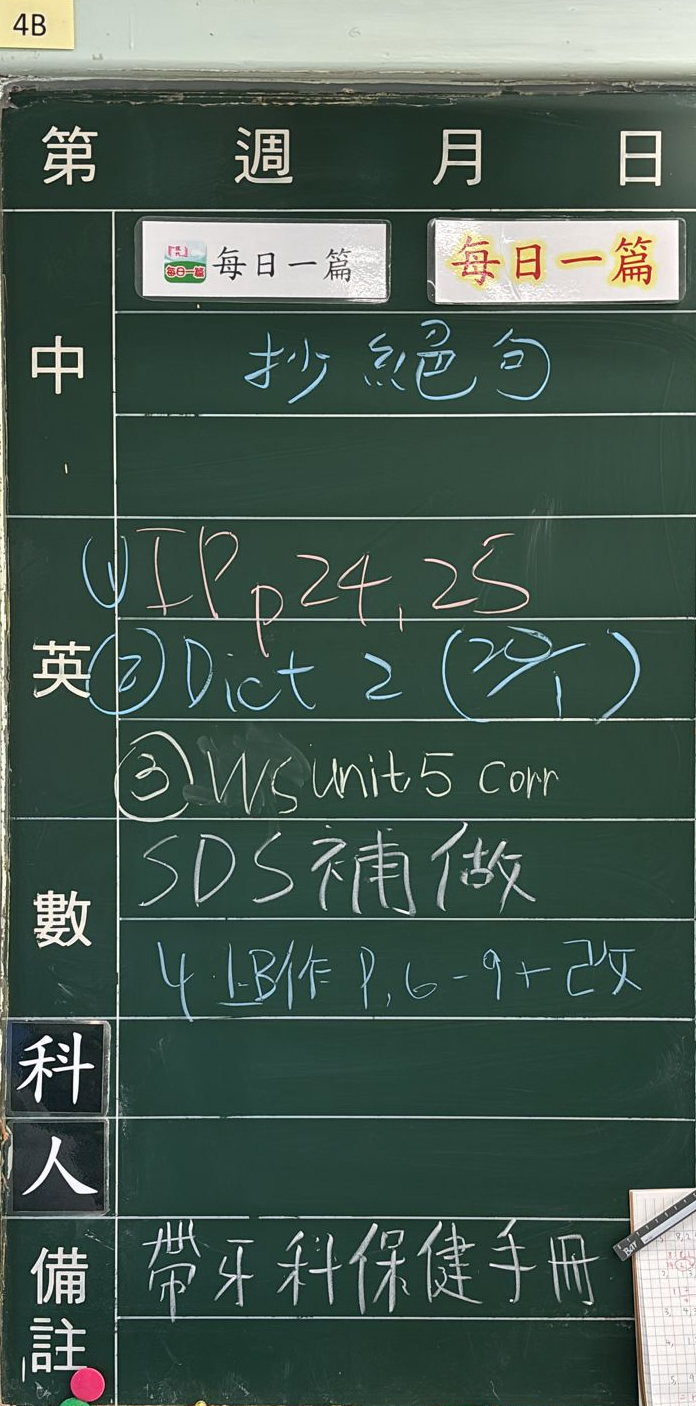 4B
第 週 月 日
每日一篇 每日一篇 每日一篇
中
抄絕句
英
① IP p24, 25
② Dict 2 (20/1)
③ WS unit 5 corr
數
SDS 補做
4上B作 P.6-9+改
科
人
備註
帶牙科保健手冊